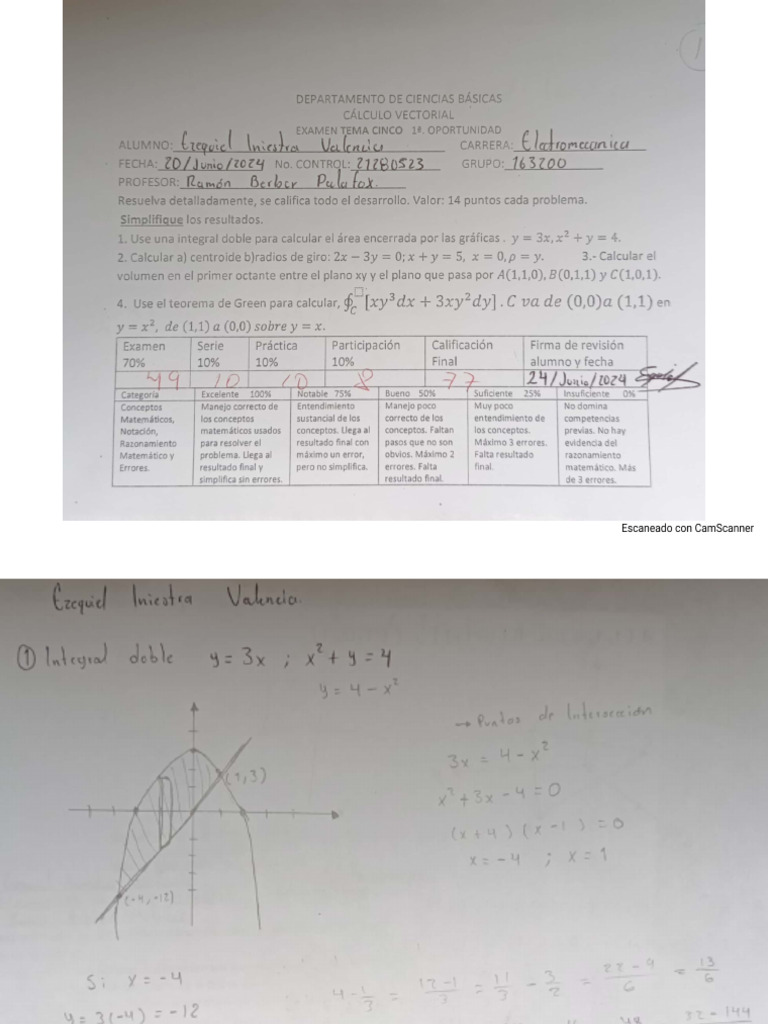 DEPARTAMENTO DE CIENCIAS BÁSICAS
CÁLCULO VECTORIAL
EXAMEN TEMA CINCO 1ª. OPORTUNIDAD
ALUMNO: Ezequiel Iniestra Valencia CARRERA: Eletromecanica
FECHA: 20/Junio/2024 No. CONTROL: 21280523 GRUPO: 163200
PROFESOR: Ramón Berber Palafox.
Resuelva detalladamente, se califica todo el desarrollo. Valor: 14 puntos cada problema.
Simplifique los resultados.
1. Use una integral doble para calcular el área encerrada por las gráficas . y = 3x, x² + y = 4.
2. Calcular a) centroide b)radios de giro: 2x − 3y = 0; x + y = 5, x = 0, ρ = y. 3.- Calcular el
volumen en el primer octante entre el plano xy y el plano que pasa por A(1,1,0), B(0,1,1) y C(1,0,1).
4. Use el teorema de Green para calcular, ∮_C^□ [xy³dx + 3xy²dy] . C va de (0,0)a (1,1) en
y = x², de (1,1) a (0,0) sobre y = x.
Examen 70% Serie 10% Práctica 10% Participación 10% Calificación Final Firma de revisión alumno y fecha
49 10 10 8 77 24/Junio/2024
Categoría Excelente 100% Notable 75% Bueno 50% Suficiente 25% Insuficiente 0%
Conceptos Manejo correcto de Entendimiento Manejo poco Muy poco No domina
Matemáticos, los conceptos sustancial de los correcto de los entendimiento de competencias
Notación, matemáticos usados conceptos. Llega al conceptos. Faltan los conceptos. previas. No hay
Razonamiento para resolver el resultado final con pasos que no son Máximo 3 errores. evidencia del
Matemático y problema. Llega al máximo un error, obvios. Máximo 2 Falta resultado razonamiento
Errores. resultado final y pero no simplifica. errores. Falta final. matemático. Más
simplifica sin errores. resultado final. de 3 errores.
Escaneado con CamScanner
Ezequiel Iniestra Valencia.
① Integral doble y = 3x ; x² + y = 4
y = 4 − x²
→ Puntos de Interseccion
3x = 4 − x²
x² + 3x − 4 = 0
(x + 4) (x − 1) = 0
x = −4 ; x = 1
(1,3)
(−4,−12)
Si x = −4
y = 3(−4) = −12
4 − 1/3 = 12−1/3 = 11/3 − 3/2 = 22−9/6 = 13/6
32 − 144